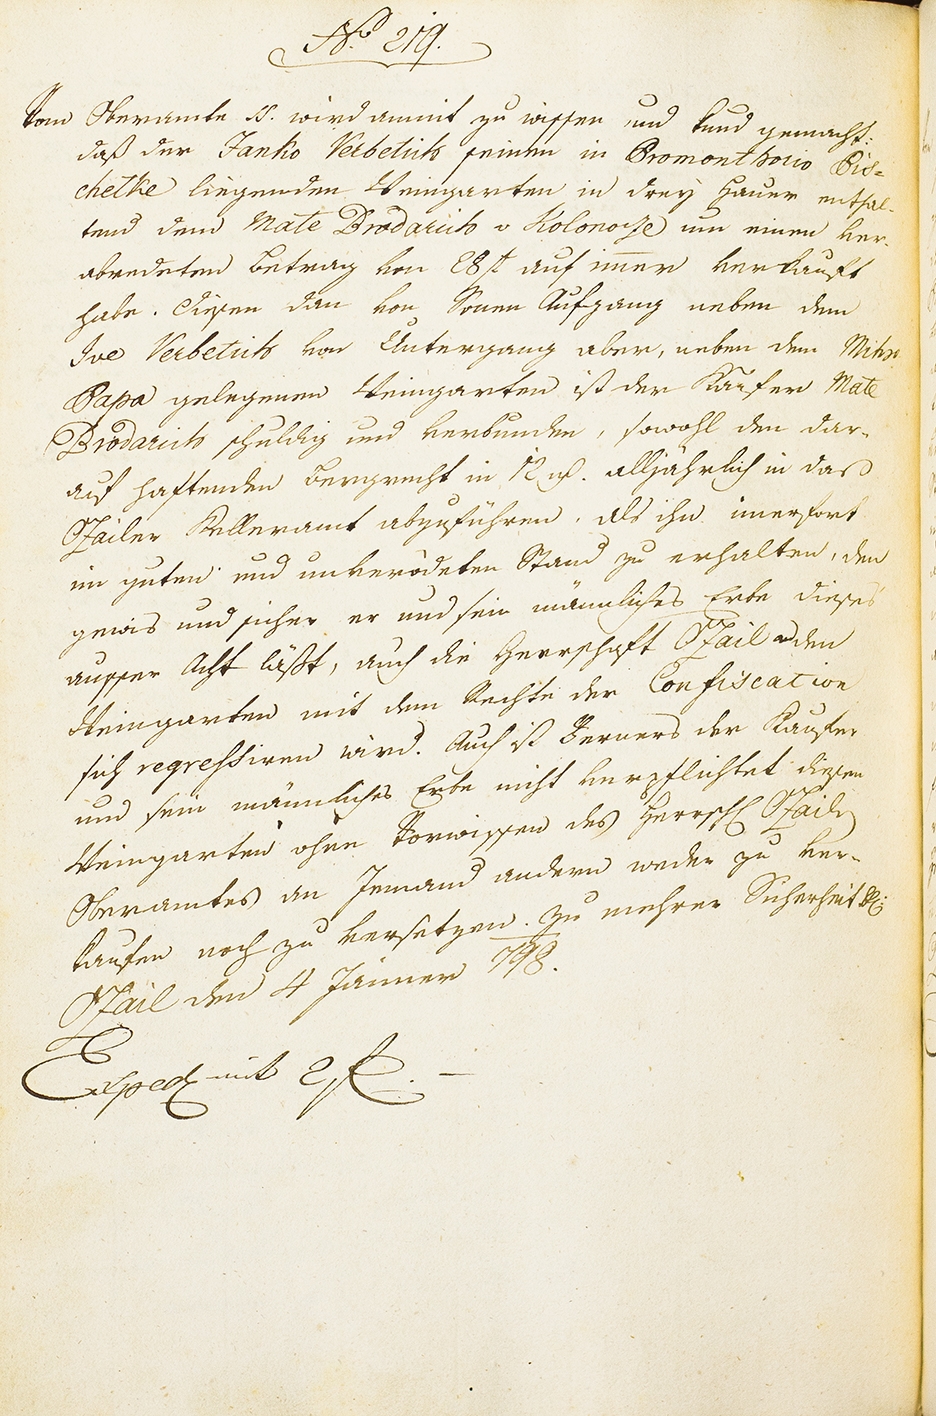 No 219.
Vom Oberamte ss. wird anmit zu wissen und kund gemacht:
daß der Janko Verbetich seinen in Promonthorio Pis=
chetke liegenden Weingarten in drey Hauer enthal-
tend dem Mate Brodarich v Kolonoize um einen ver-
abredeten Betrag von 28 f auf immer verkauft
habe. Diesen dan von Sonen Aufgang neben dem
Ive Verbetich von Untergang aber, neben dem Miho
Papa gelegenen Weingarten ist der Käufer Mate
Brodarich schuldig und verbunden, sowohl den dar-
auf haftenden Bergrecht in 12 gr. alljährlich in das
Ozailer Kelleramt abzuführen, als ihn imerfort
im guten und unverödeten Stand zu erhalten, den
gewis und sicher er und sein männliches Erbe dieses
ausser Acht läßt, auch die Herrschaft Ozail den
Weingarten mit dem Rechte der Confiscation
sich regressiren wird. Auch ist Ferners der Kaufer
und sein männliches Erbe nicht verpflichtet diesen
Weingarten ohne Vorwissen des Herrschl Ozailer
Oberamtes an Jemand andern weder zu ver-
kaufen noch zu versetzen. Zu mehrer Sicherheit
Ozail den 4 Jänner 798.
Exped mit 2 f. —